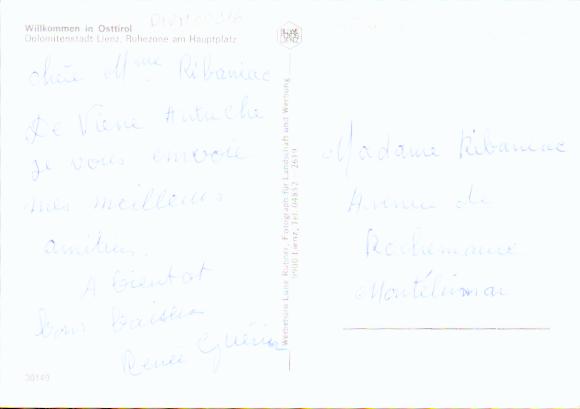 Willkommen in Osttirol
Dolomitenstadt Lienz, Ruhezone am Hauptplatz
chère Mme Ribaniac
De Viene Autriche
je vous envoie
mes meilleurs
amitiés.
A bientot
bons baisers
Renee Guérin
30149
Werbebüro Luise Rubner, Fotograph für Landschaft und Werbung
9900 Lienz, Tel. 04852 - 2619
Madame Ribaniac
Avenue de
Rochemaure
Montélimar